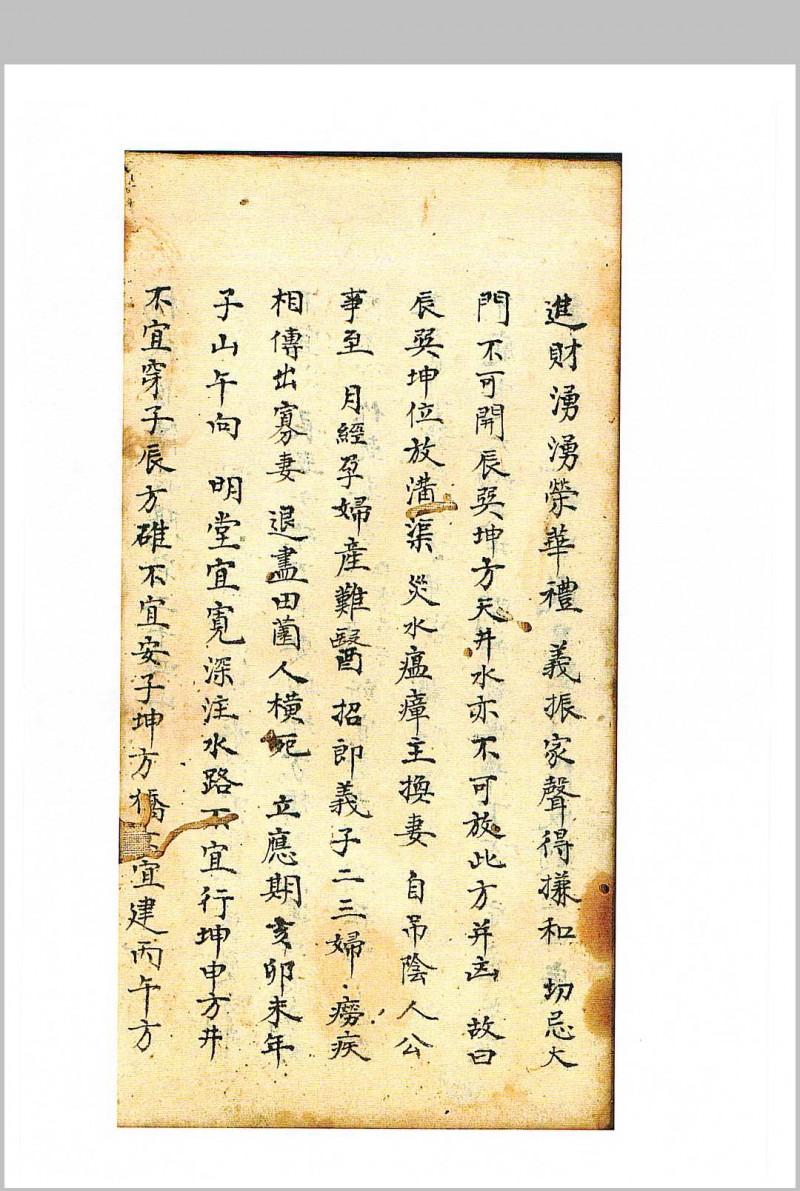 進財湧湧榮華禮 義振家聲得㩦和 切忌大
門不可開辰巽坤方天井水亦不可放此方井凶 故曰
辰巽坤位放溝渠 災水瘟瘴主換妻 自吊陰人公
事至 月經孕婦產難醫 招郎義子二三婦 癆疾
相傳出寡妻 退盡田園人橫死 立應期亥卯未年
子山午向 明堂宜寬深注水路不宜行坤申方井
不宜穿子辰方碓不宜安子坤方 宜建丙午方